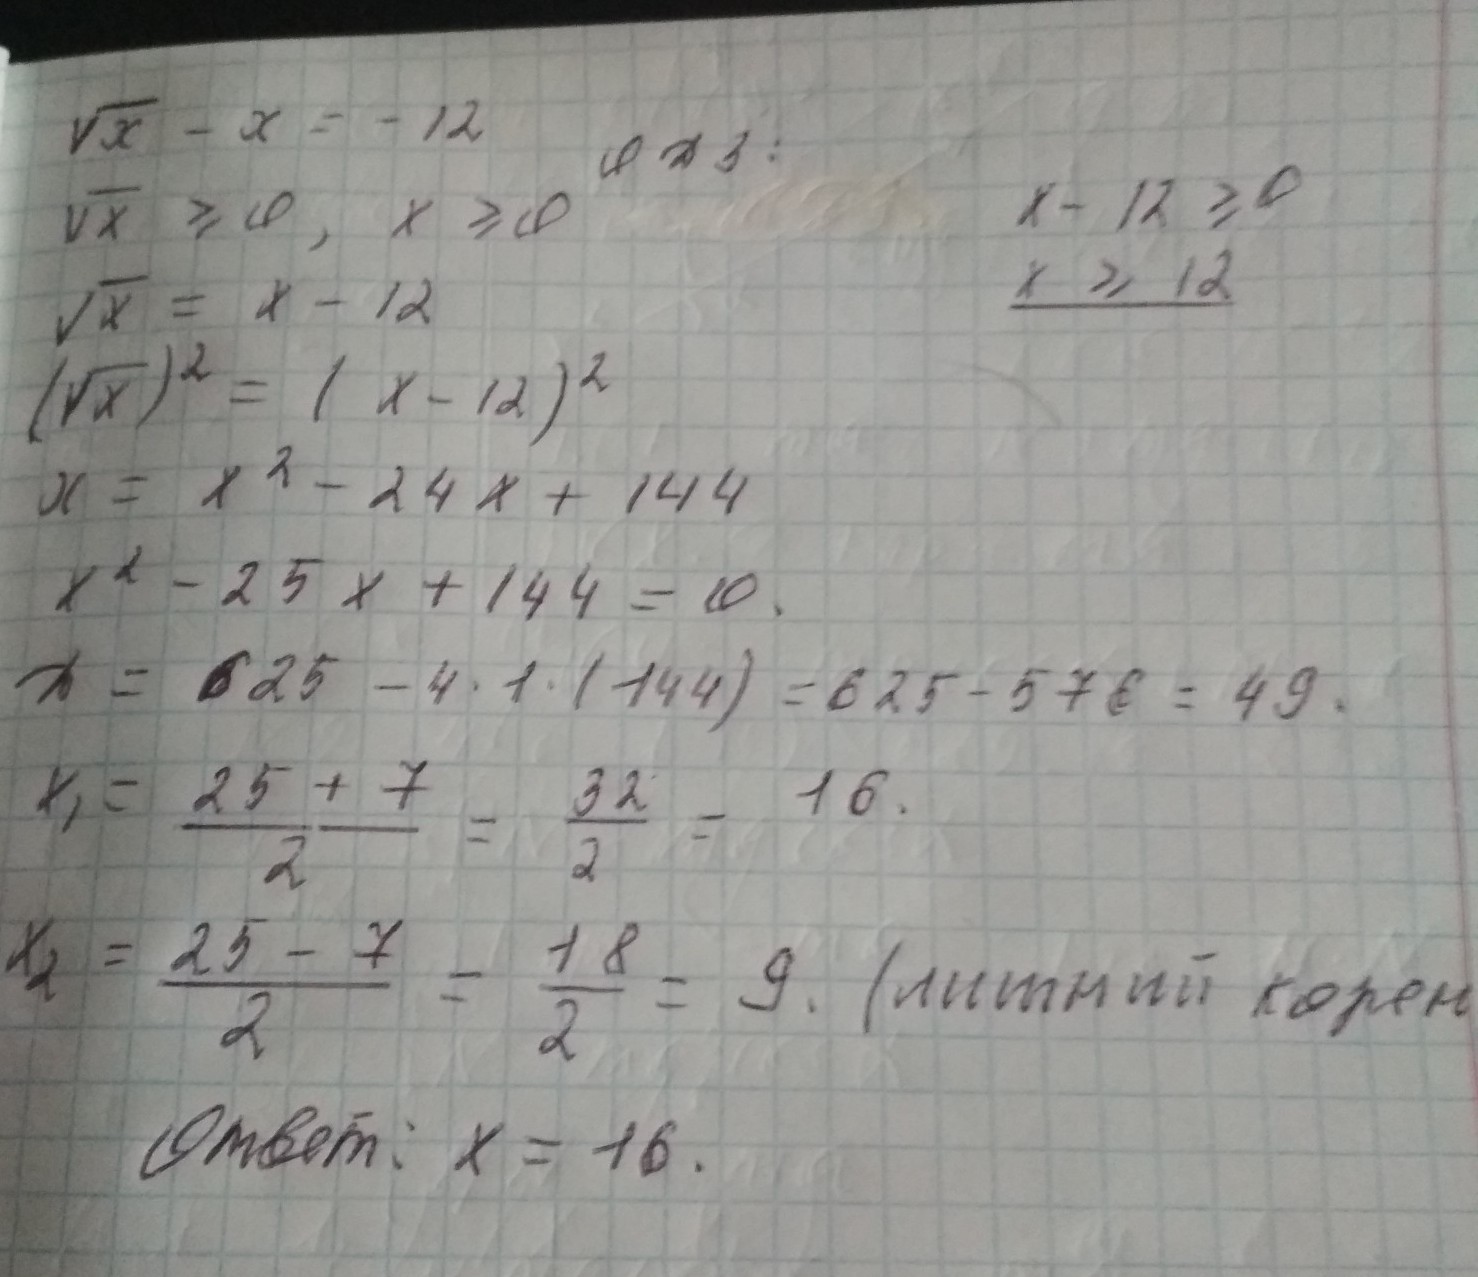 √x - x = - 12
ОДЗ:
√x ≥ 0, x ≥ 0
x - 12 ≥ 0
x ≥ 12
√x = x - 12
(√x)² = (x - 12)²
x = x² - 24x + 144
x² - 25x + 144 = 0.
Д = 625 - 4 · 1 · (144) = 625 - 576 = 49.
x₁ = (25 + 7)/2 = 32/2 = 16.
x₂ = (25 - 7)/2 = 18/2 = 9. (лишний корен
Ответ: x = 16.